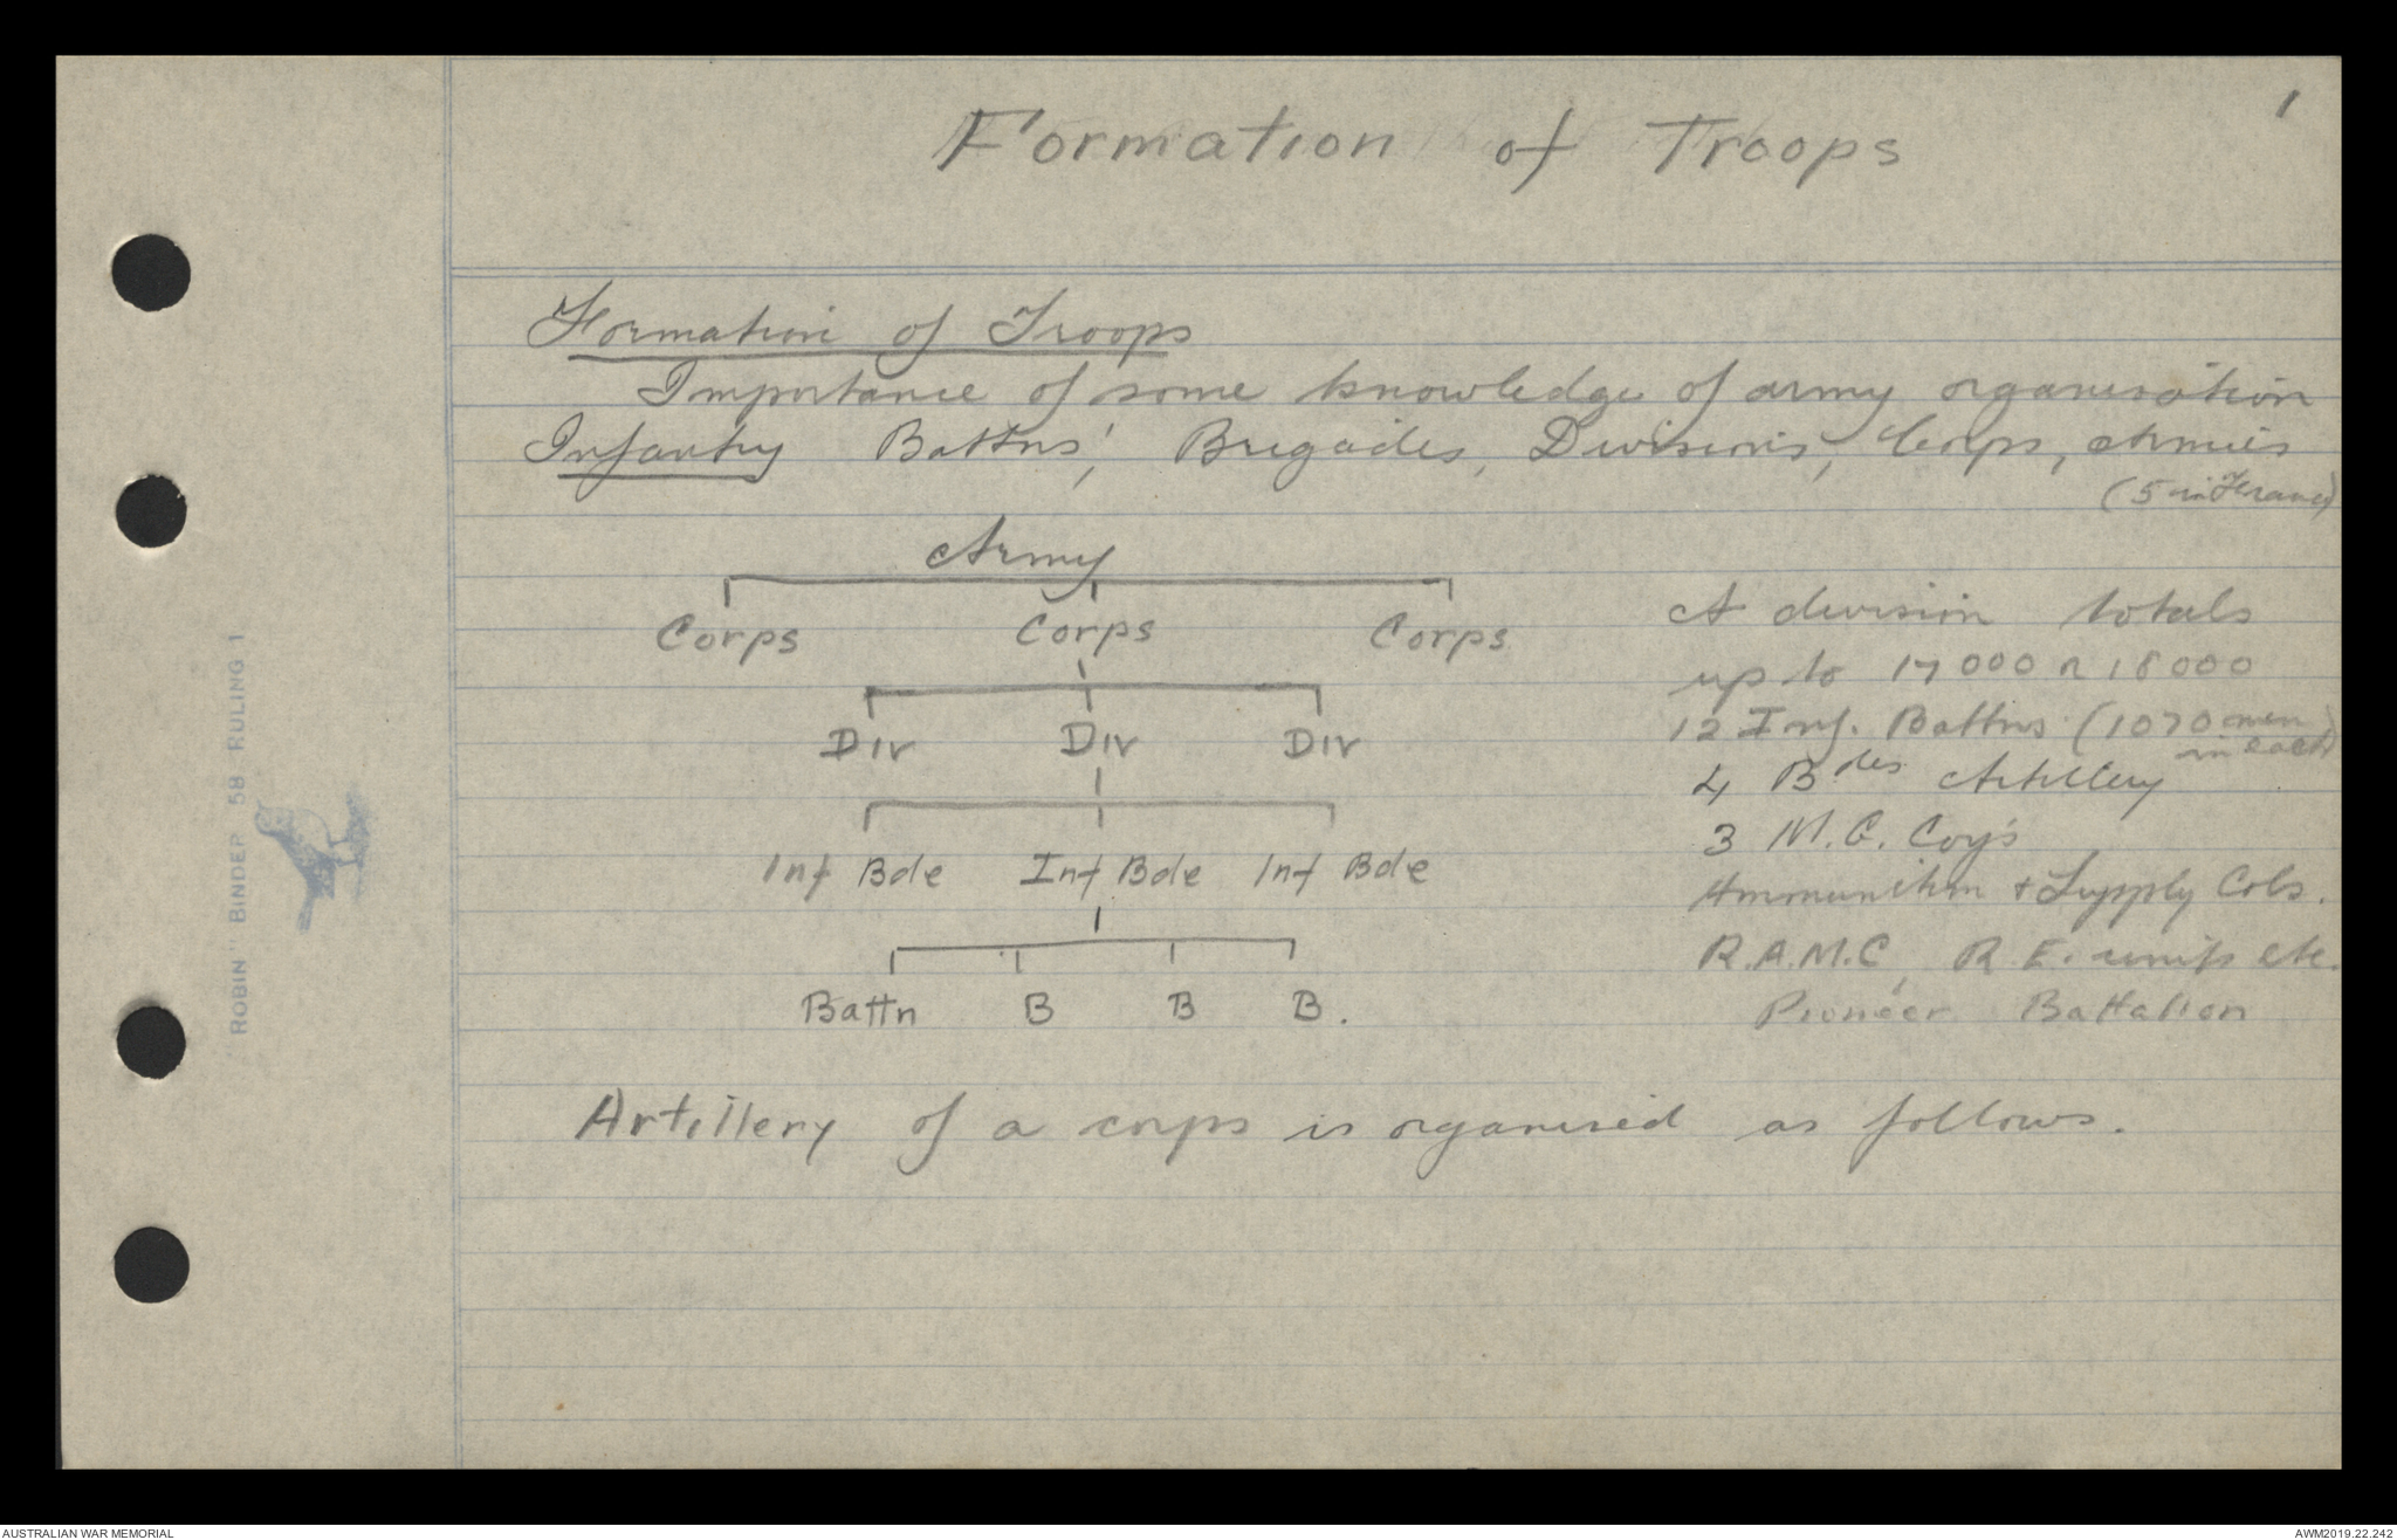 1
Formation of Troops
Formation of Troops
Importance of some knowledge of army organisation
Infantry Battns', Brigades, Divisions, Corps, Armies
(5 in France)
Army
Corps Corps Corps
Div Div Div
Inf Bde Inf Bde Inf Bde
Battn B B B.
A division totals
up to 17000 or 18000
12 Inf. Battns (1070 men
in each)
4 Bdes Artillery
3 M.G. Coy's
Ammunition + Supply Cols.
R.A.M.C, R.E. units etc.
Pioneer Battalion
Artillery of a corps is organised as follows.
ROBIN" BINDER 58 RULING 1
AUSTRALIAN WAR MEMORIAL
AWM2019.22.242